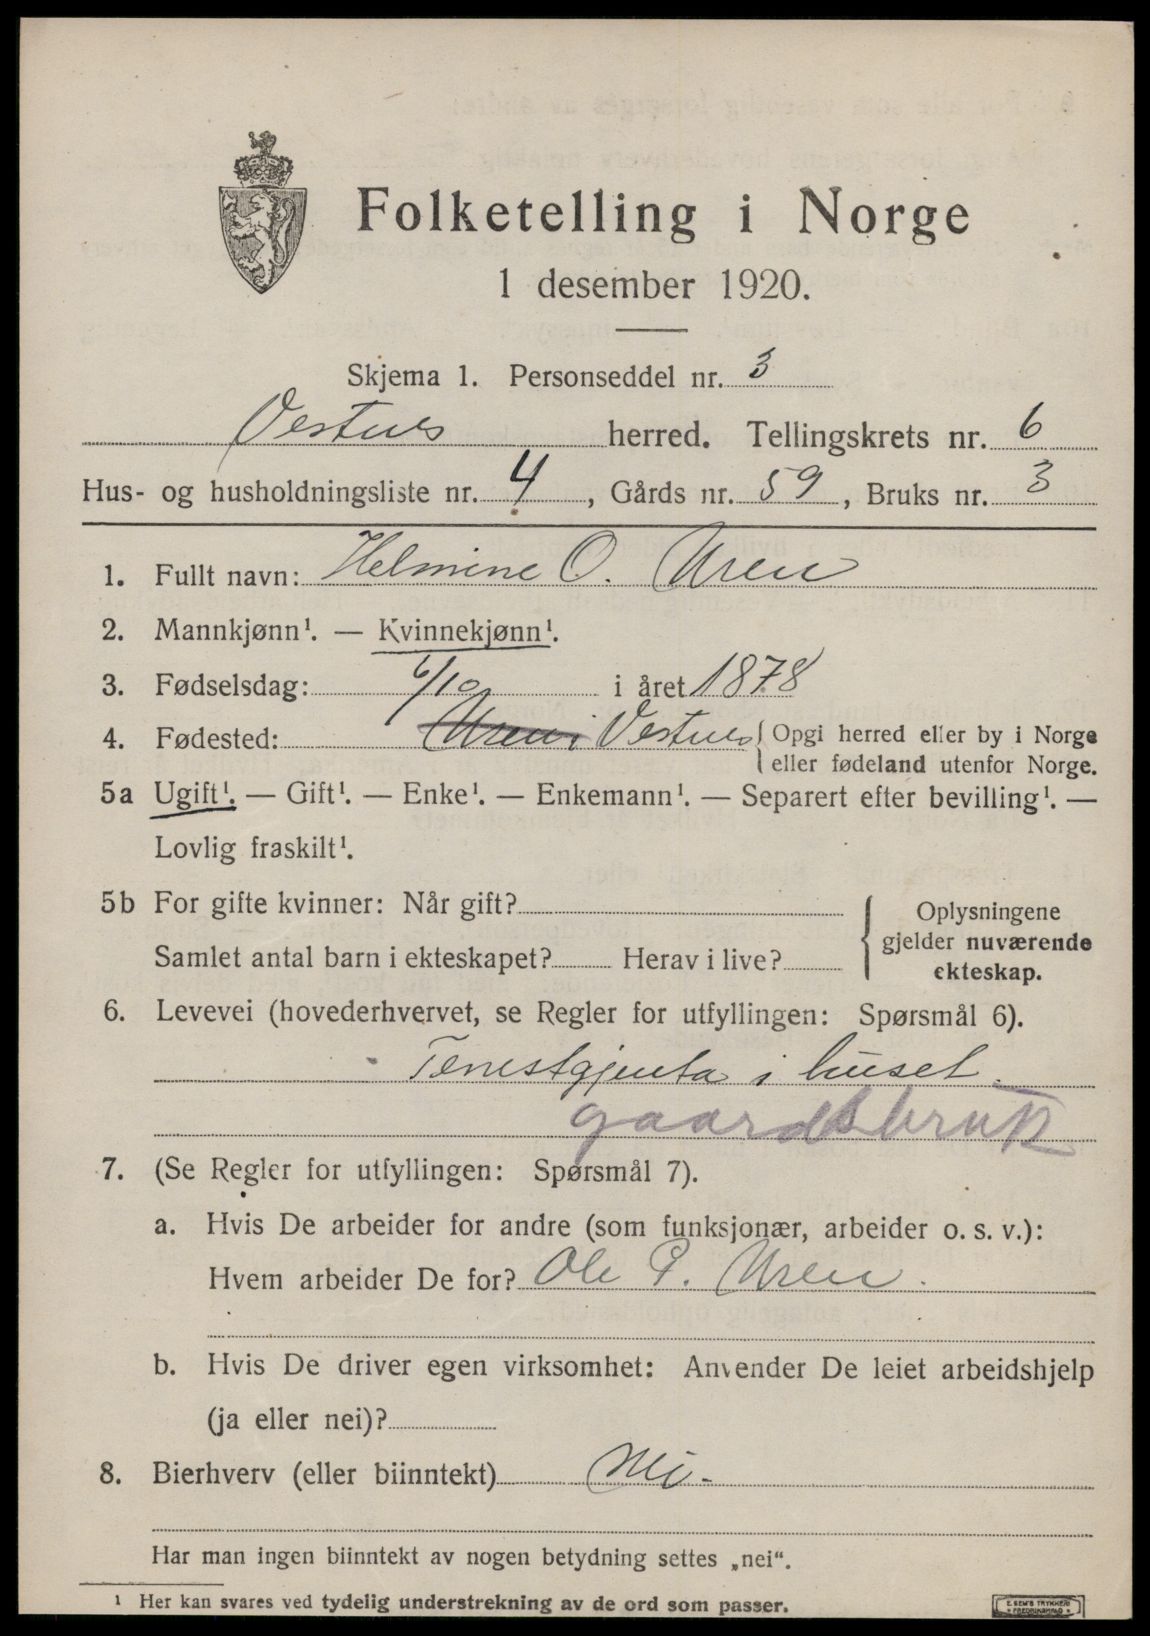 Folketelling i Norge
1 desember 1920.
Skjema 1. Personseddel nr. 3
Vestnes herred. Tellingskrets nr. 6
Hus- og husholdningsliste nr. 4, Gårds nr. 59, Bruks nr. 3
1. Fullt navn: Helmine O. Uren
2. Mannkjønn¹. — Kvinnekjønn¹.
3. Fødselsdag: 6/10 i året 1878
4. Fødested: Uren i Vestnes { Opgi herred eller by i Norge
eller fødeland utenfor Norge.
5a Ugift¹. — Gift¹. — Enke¹. — Enkemann¹. — Separert efter bevilling¹. —
Lovlig fraskilt¹.
5b For gifte kvinner: Når gift?
Samlet antal barn i ekteskapet? Herav i live?
{ Oplysningene
gjelder nuværende
ekteskap.
6. Levevei (hovederhvervet, se Regler for utfyllingen: Spørsmål 6).
Tenestgjenta i huset.
gaardsbruk
7. (Se Regler for utfyllingen: Spørsmål 7).
a. Hvis De arbeider for andre (som funksjonær, arbeider o. s. v.):
Hvem arbeider De for? Ole P. Uren.
b. Hvis De driver egen virksomhet: Anvender De leiet arbeidshjelp
(ja eller nei)?
8. Bierhverv (eller biinntekt) Nei.
Har man ingen biinntekt av nogen betydning settes „nei“.
¹ Her kan svares ved tydelig understrekning av de ord som passer.
E. SEM'S TRYKKERI
FREDRIKSHALD